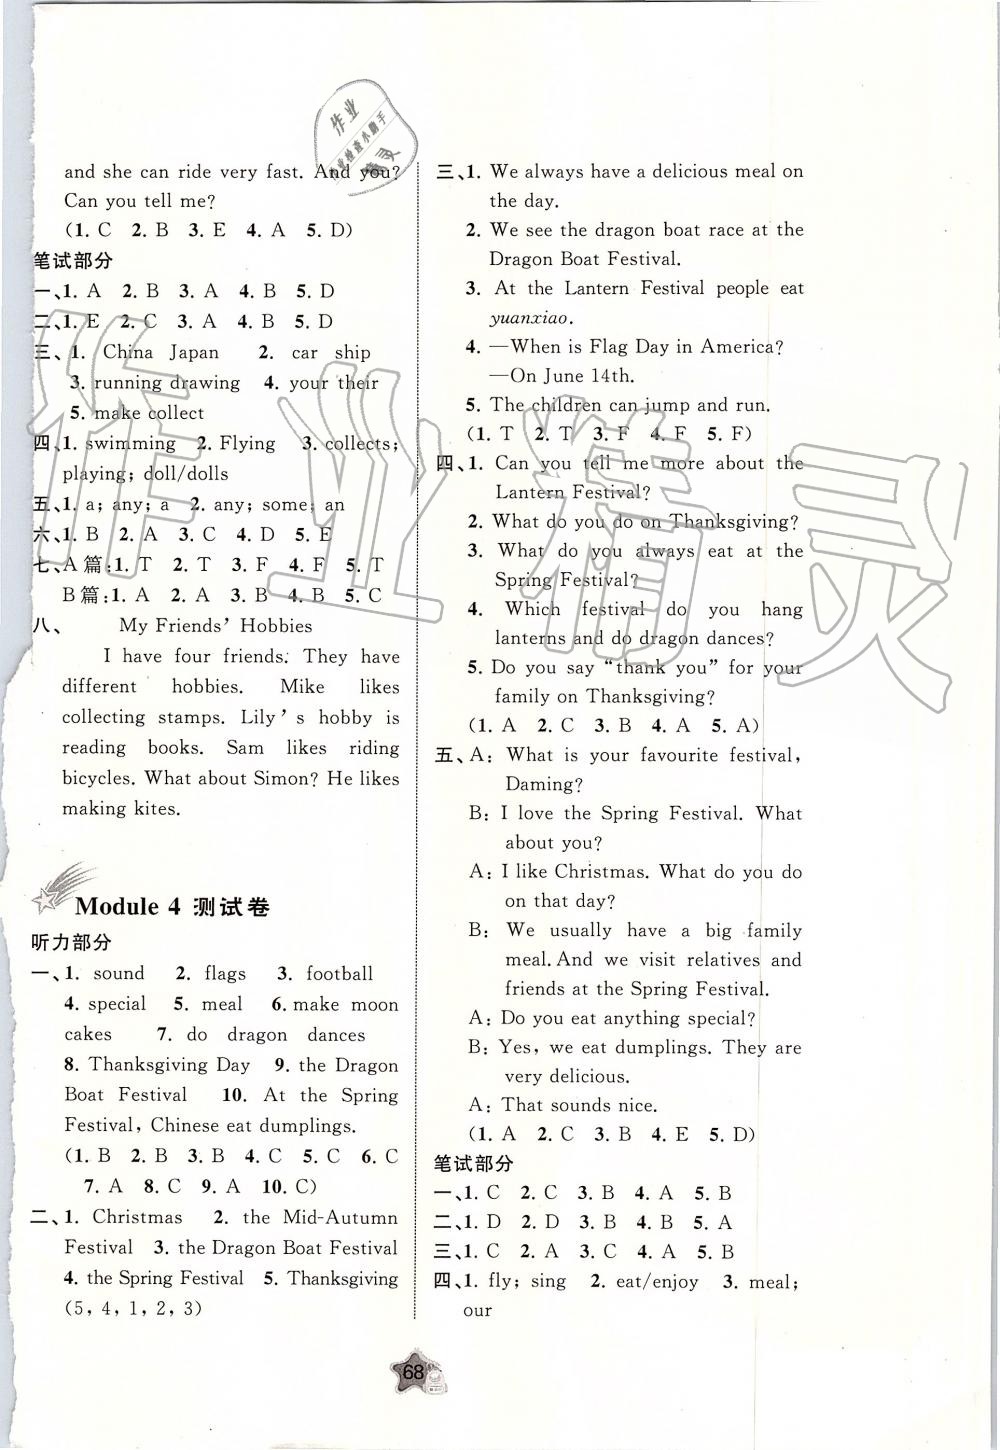 and she can ride very fast. And you?
Can you tell me?
(1. C 2. B 3. E 4. A 5. D)
笔试部分
一、1. A 2. B 3. A 4. B 5. D
二、1. E 2. C 3. A 4. B 5. D
三、1. China Japan 2. car ship
3. running drawing 4. your their
5. make collect
四、1. swimming 2. Flying 3. collects;
playing; doll/dolls
五、1. a; any; a 2. any; some; an
六、1. B 2. A 3. C 4. D 5. E
七、A篇:1. T 2. T 3. F 4. F 5. T
B篇:1. A 2. A 3. B 4. B 5. C
八、 My Friends' Hobbies
I have four friends. They have
different hobbies. Mike likes
collecting stamps. Lily's hobby is
reading books. Sam likes riding
bicycles. What about Simon? He likes
making kites.
Module 4 测试卷
听力部分
一、1. sound 2. flags 3. football
4. special 5. meal 6. make moon
cakes 7. do dragon dances
8. Thanksgiving Day 9. the Dragon
Boat Festival 10. At the Spring
Festival, Chinese eat dumplings.
(1. B 2. B 3. B 4. C 5. C 6. C
7. A 8. C 9. A 10. C)
二、1. Christmas 2. the Mid-Autumn
Festival 3. the Dragon Boat Festival
4. the Spring Festival 5. Thanksgiving
(5, 4, 1, 2, 3)
三、1. We always have a delicious meal on
the day.
2. We see the dragon boat race at the
Dragon Boat Festival.
3. At the Lantern Festival people eat
yuanxiao.
4. —When is Flag Day in America?
—On June 14th.
5. The children can jump and run.
(1. T 2. T 3. F 4. F 5. F)
四、1. Can you tell me more about the
Lantern Festival?
2. What do you do on Thanksgiving?
3. What do you always eat at the
Spring Festival?
4. Which festival do you hang
lanterns and do dragon dances?
5. Do you say "thank you" for your
family on Thanksgiving?
(1. A 2. C 3. B 4. A 5. A)
五、A: What is your favourite festival,
Daming?
B: I love the Spring Festival. What
about you?
A: I like Christmas. What do you do
on that day?
B: We usually have a big family
meal. And we visit relatives and
friends at the Spring Festival.
A: Do you eat anything special?
B: Yes, we eat dumplings. They are
very delicious.
A: That sounds nice.
(1. A 2. C 3. B 4. E 5. D)
笔试部分
一、1. C 2. C 3. B 4. A 5. B
二、1. D 2. D 3. B 4. B 5. A
三、1. C 2. A 3. C 4. A 5. B
四、1. fly; sing 2. eat/enjoy 3. meal;
our
68
作业精灵
作业